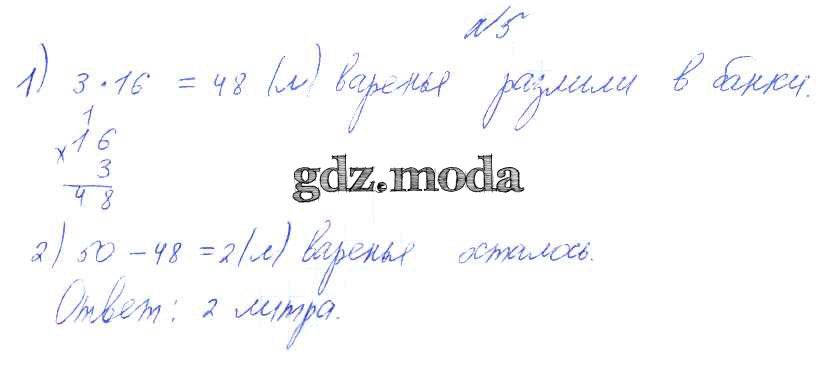 №5
1) 3·16 = 48 (л) варенья разлили в банки.
1
×16
3
48
gdz.moda
2) 50 - 48 = 2 (л) варенья осталось.
Ответ: 2 литра.